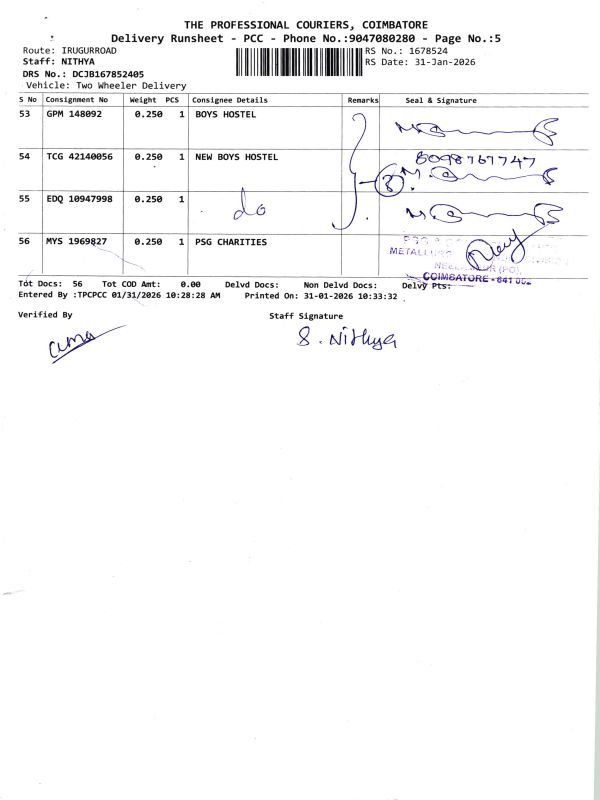 THE PROFESSIONAL COURIERS, COIMBATORE
Delivery Runsheet - PCC - Phone No.:9047080280 - Page No.:5
Route: IRUGURROAD RS No.: 1678524
Staff: NITHYA RS Date: 31-Jan-2026
DRS No.: DCJB167852405
Vehicle: Two Wheeler Delivery
S No Consignment No Weight PCS Consignee Details Remarks Seal & Signature
53 GPM 148092 0.250 1 BOYS HOSTEL
54 TCG 42140056 0.250 1 NEW BOYS HOSTEL 8098767747
55 EDQ 10947998 0.250 1 do
56 MYS 1969827 0.250 1 PSG CHARITIES
COIMBATORE - 641 062
Tot Docs: 56 Tot COD Amt: 0.00 Delvd Docs: Non Delvd Docs: Delvy Pts:
Entered By :TPCPCC 01/31/2026 10:28:28 AM Printed On: 31-01-2026 10:33:32
Verified By Staff Signature
uma S. Nithya